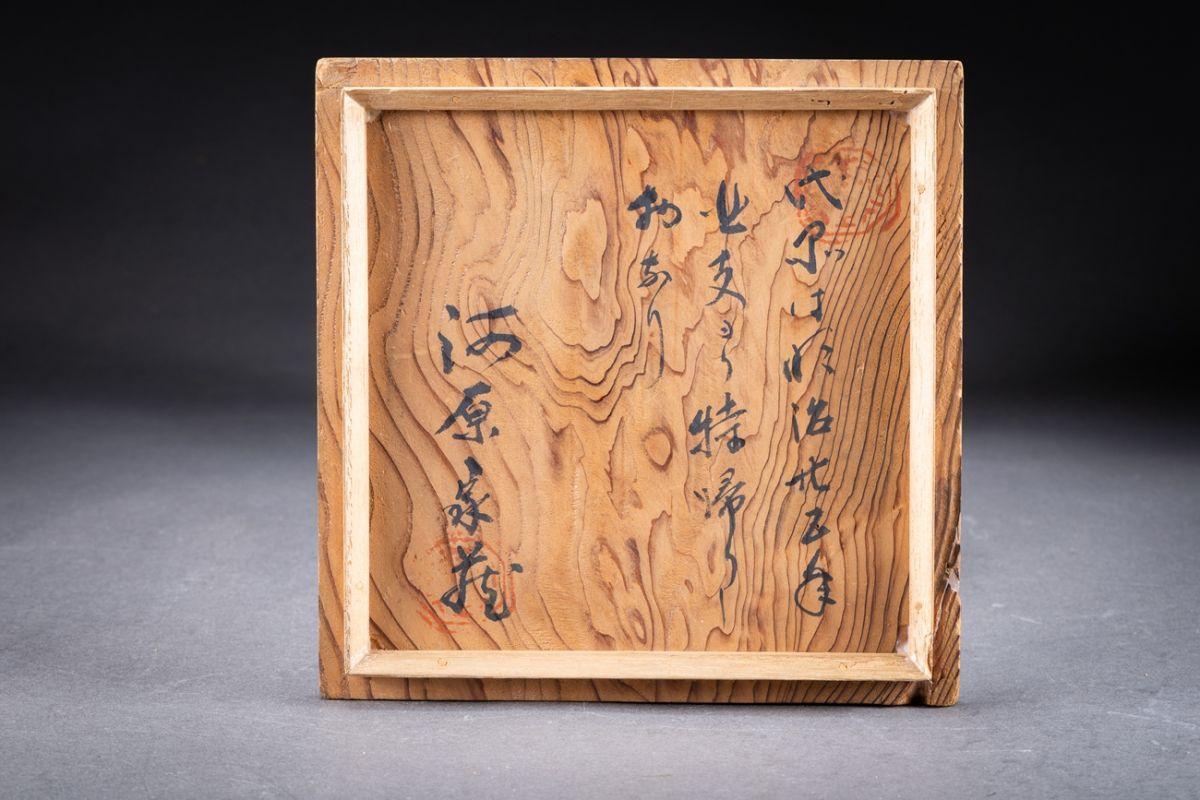 は明治廿五年
北支より持帰りし
物なり
河原家蔵